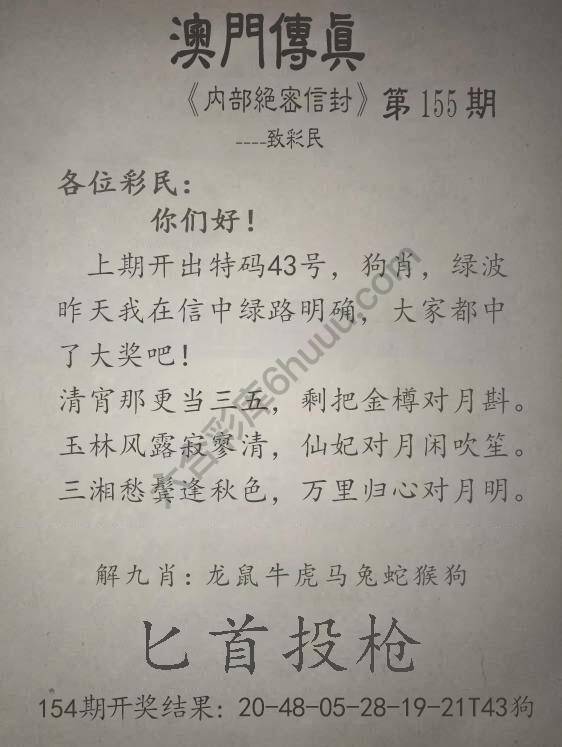 澳門傳眞
《内部絕密信封》第155期
----致彩民
各位彩民：
你们好！
上期开出特码43号，狗肖，绿波
昨天我在信中绿路明确，大家都中
了大奖吧！
清宵那更当三五，剩把金樽对月斟。
玉林风露寂寥清，仙妃对月闲吹笙。
三湘愁鬓逢秋色，万里归心对月明。
解九肖：龙鼠牛虎马兔蛇猴狗
匕首投枪
154期开奖结果：20-48-05-28-19-21T43狗
六合彩库6huuu.com